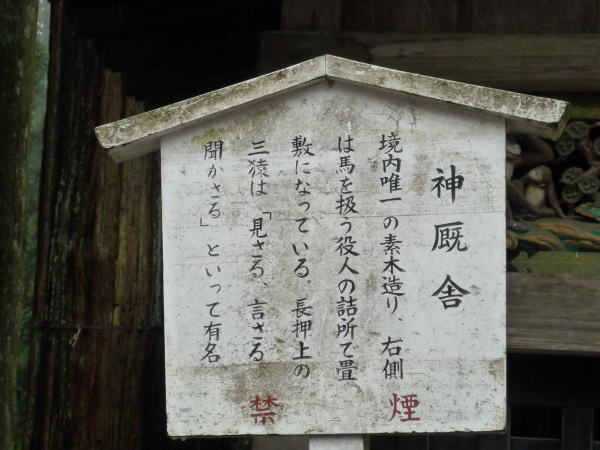 神厩舎
境内唯一の素木造り、右側
は馬を扱う役人の詰所で畳
敷になっている。長押上の
三猿は「見ざる、言さる
聞かさる」といって有名
禁煙